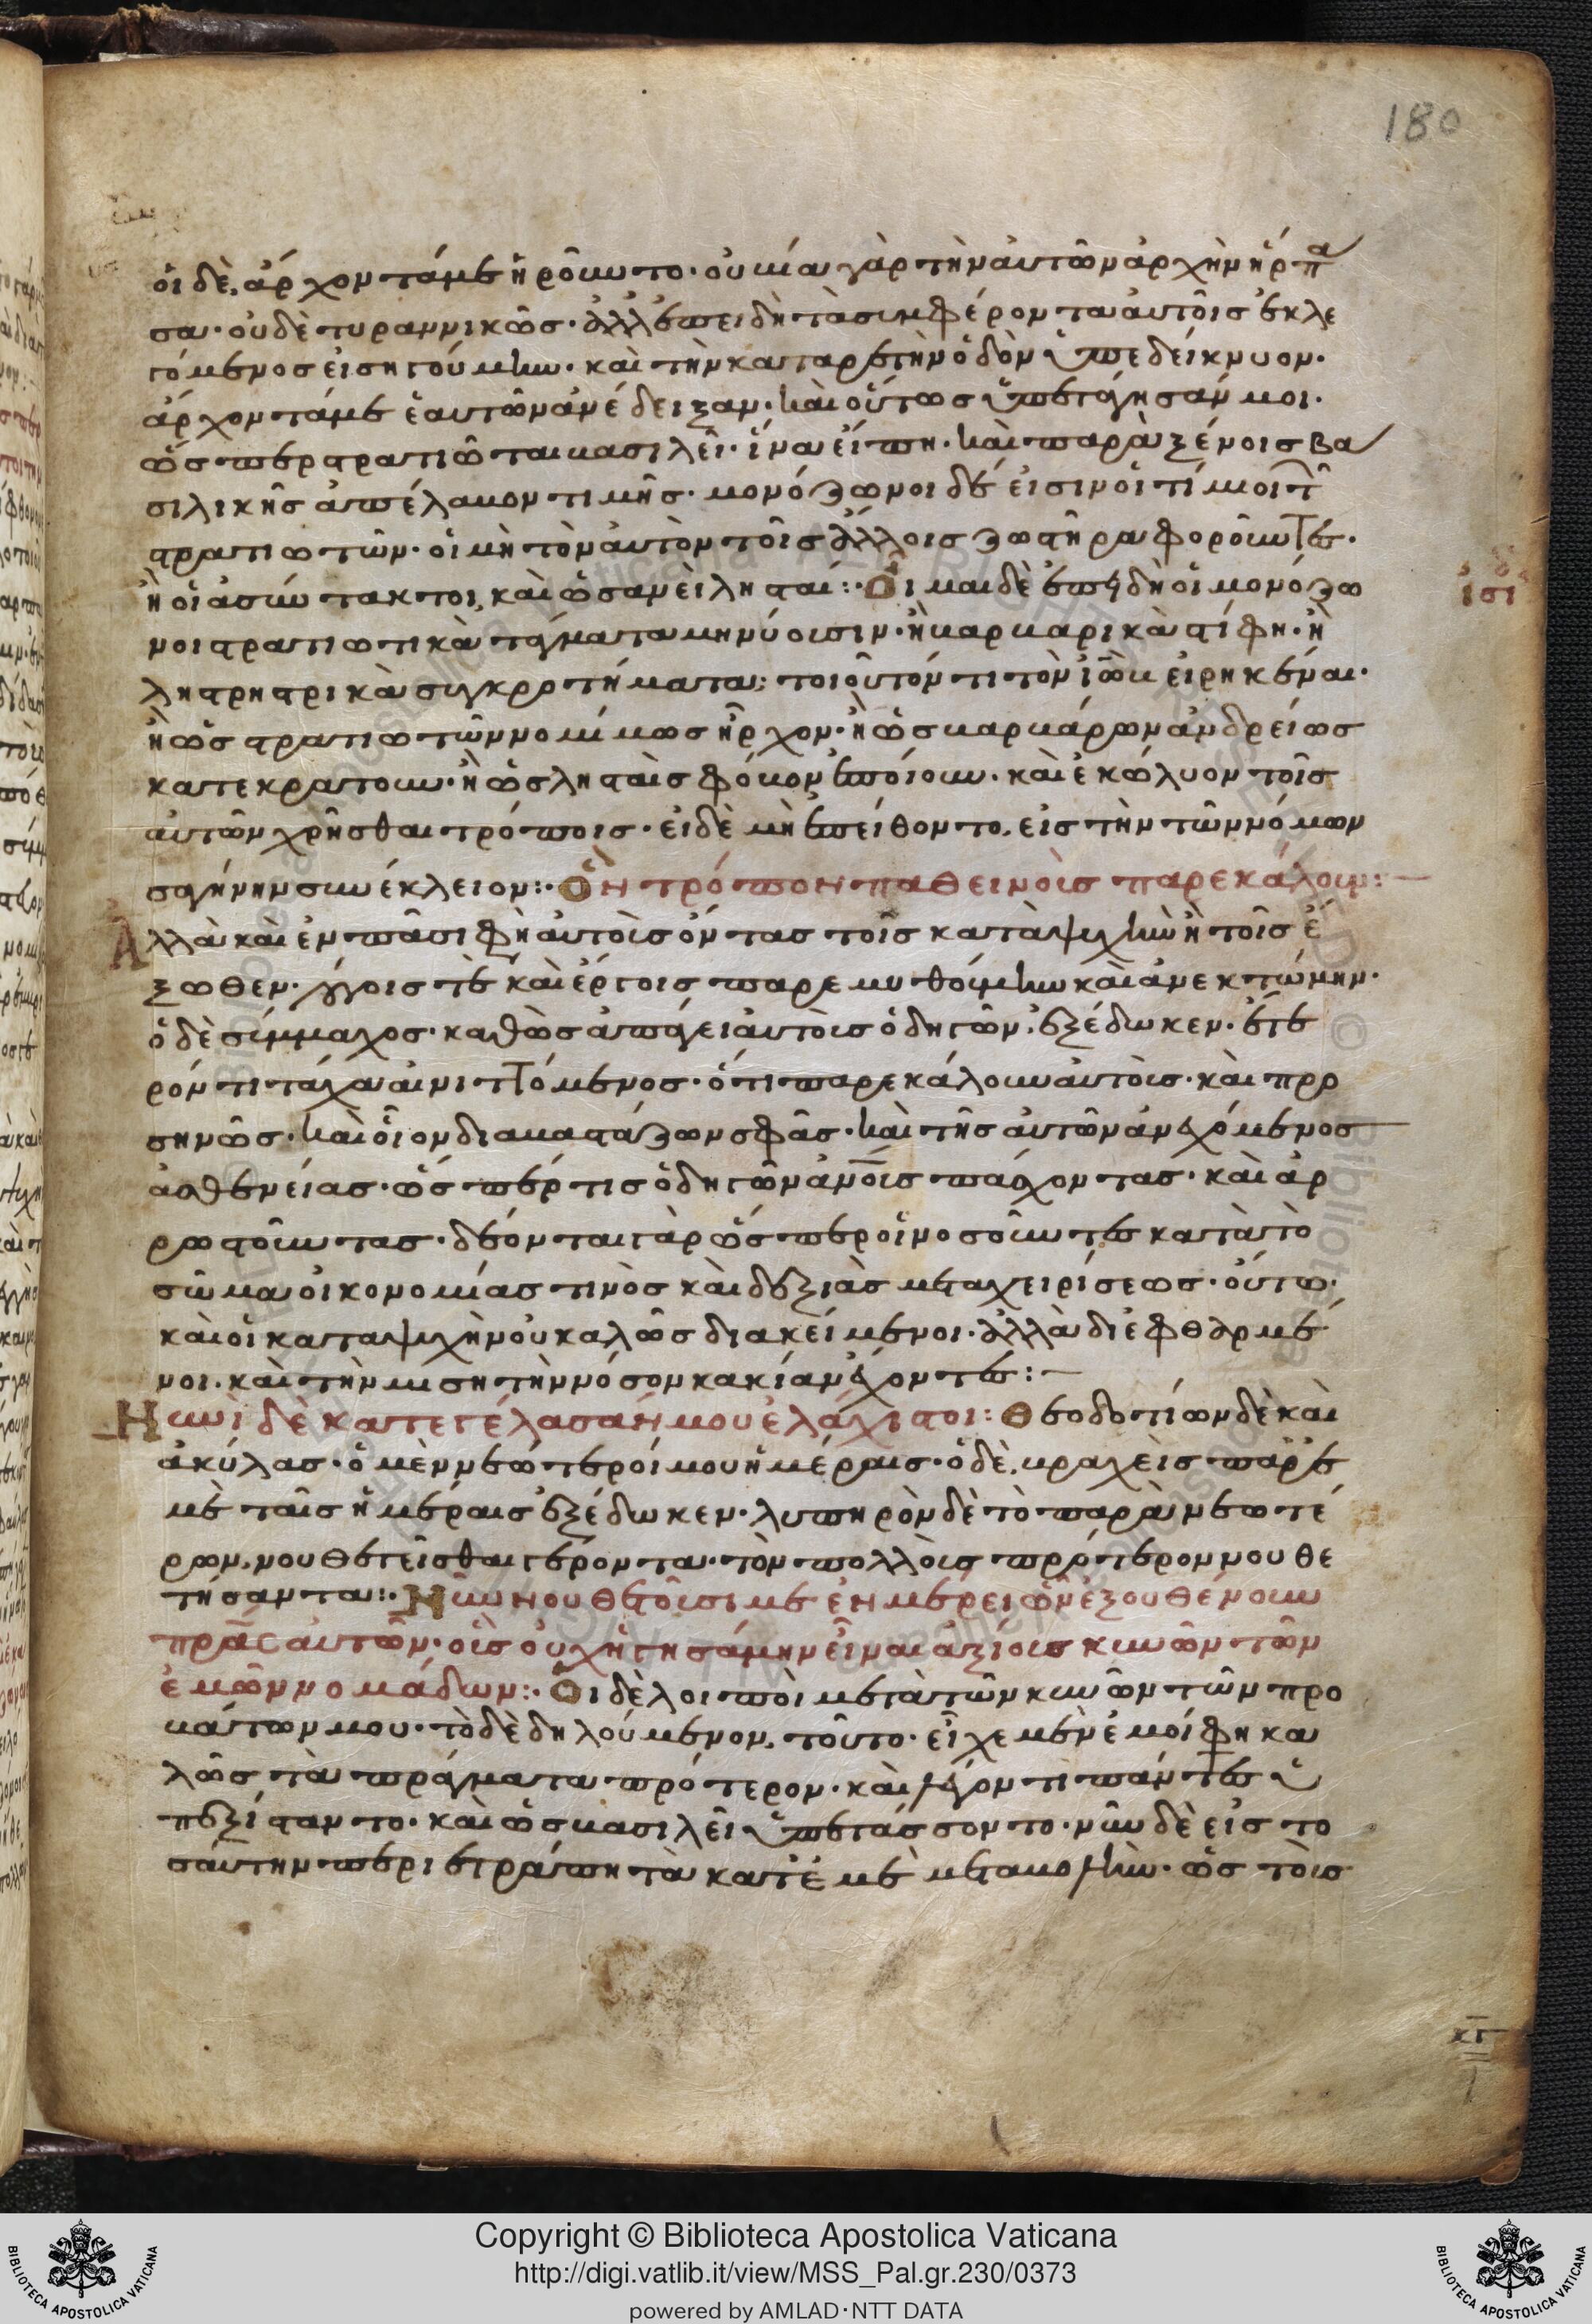 180
οἱ δὲ, ἄρχοντά με ἡροῦντο· οὐ βίᾳ γὰρ τὴν αὐτῶν ἀρχὴν ἥρπα
σα· οὐδὲ τυραννικῶς· ἀλλ' ἐπειδὴ τὰ συμφέροντα αὐτοῖς ἐκλε
γόμενος εἰσηγούμην· καὶ τὴν κατ' ἀρετὴν ὁδὸν ὑπεδείκνυον·
ἄρχοντά με ἑαυτῶν ἀνέδειξαν· καὶ οὕτως ὑπετάγησάν μοι·
ὡς περ στρατιῶται βασιλεῖ· ἵνα εἴπη· καὶ παρὰ ξένοις βα
σιλικῆς ἀπέλαβον τιμῆς· μονόζωνοι δέ εἰσιν οἵ τινες τῶν
στρατιωτῶν· οἱ μὴ τὸν αὐτὸν τοῖς ἄλλοις ζωστῆρα φοροῦντες·
ἢ οἱ ἀσύντακτοι, καὶ ὡσανεὶ λησταί:· Οἶμαι δὲ ἐπειδὴ οἱ μονόζω
νοι στρατιωτικὰ τάγματα μηνύουσιν· ἢ βαρβαρικὰ στίφη· ἢ
ληστρικὰ συγκροτήματα; τοιοῦτόν τι τὸν ἰὼβ εἰρηκέναι·
ἢ ὡς στρατιωτῶν νομίμως ἦρχον· ἢ ὡς βαρβάρων ἀνδρείως
κατεκράτουν· ἢ ὡς λησταῖς φόβον ἐποίουν· καὶ ἐκώλυον τοῖς
αὐτῶν χρῆσθαι τρόποις· εἰ δὲ μὴ ἐπείθοντο, εἰς τὴν τῶν νόμων
σαγήνην συνέκλειον:· Ὃν τρόπον παθεινοὺς παρεκάλουν:
Ἀλλὰ καὶ ἐν πᾶσι φὴ αὐτοῖς ὄντας τοῖς κατὰ ψυχὴν ἢ τοῖς ἔ
ξωθεν· λόγοις τὲ καὶ ἔργοις παρεμυθούμην καὶ ἀνεκτώμην·
ὁ δὲ σύμμαχος· καθὼς ἀπήγει αὐτοὺς ὁδηγῶν, ἐξέδωκεν· ἕτε
ρόν τι τάχα αἰνιττόμενος· ὅτι παρεκάλουν αὐτοὺς· καὶ προ
σηνῶς· καὶ οἷον διαβαστάζων σφᾶς· καὶ τῆς αὐτῶν ἀνεχόμενος
ἀσθενείας· ὥς πέρ τις ὁδηγῶν ἀνοὺς πάσχοντας· καὶ ἀρ
ρωστοῦντας· δέονται γὰρ ὥς περ οἱ νοσοῦντες κατὰ τὸ
σῶμα οἰκονομίας τινὸς καὶ δεξιὰς μεταχειρίσεως· οὕτω·
καὶ οἱ κατὰ ψυχὴν οὐ καλῶς διακείμενοι· ἀλλὰ διεφθαρμέ
νοι. καὶ τὴν μισητὴν νόσον κακίαν ἔχοντες:
Νυνὶ δὲ κατεγέλασάν μου ἐλάχιστοι: Θεοδοτίων δὲ καὶ
ἀκύλας· ὁ μὲν νεώτεροί μου ἡμέραις· ὁ δὲ, βραχεῖς παρ' ἐ
μὲ ταῖς ἡμέραις ἐξέδωκεν· λυπηρὸν δὲ τὸ παρὰ νεωτέ
ρων, νουθετεῖσθαι γέροντα· τὸν πολλοὺς πρότερον νουθε
τήσαντα:· Νῦν νουθετοῦσι με ἐν μέρει ὧν ἐξουθένουν
πρας αὐτῶν· οὓς οὐχ ἡγησάμην εἶναι ἀξίους κυνῶν τῶν
ἐμῶν νομάδων:· Οἱ δὲ λοιποὶ μετὰ τῶν κυνῶν τῶν προ
βάτων μου· τὸ δὲ δηλούμενον, τοῦτο· εἶχε μὲν ἐμοί φη κα
λῶς τὰ πράγματα πρότερον· καὶ λέγοντι πάντες ὑ
πεξίσταντο· καὶ ὡς βασιλεῖ ὑπετάσσοντο· νῦν δὲ εἰς το
σαύτην περιετράπη τὰ κατ' ἐμὲ μεταβολήν· ὡς τοὺς
κγ
Copyright © Biblioteca Apostolica Vaticana
http://digi.vatlib.it/view/MSS_Pal.gr.230/0373
powered by AMLAD·NTT DATA